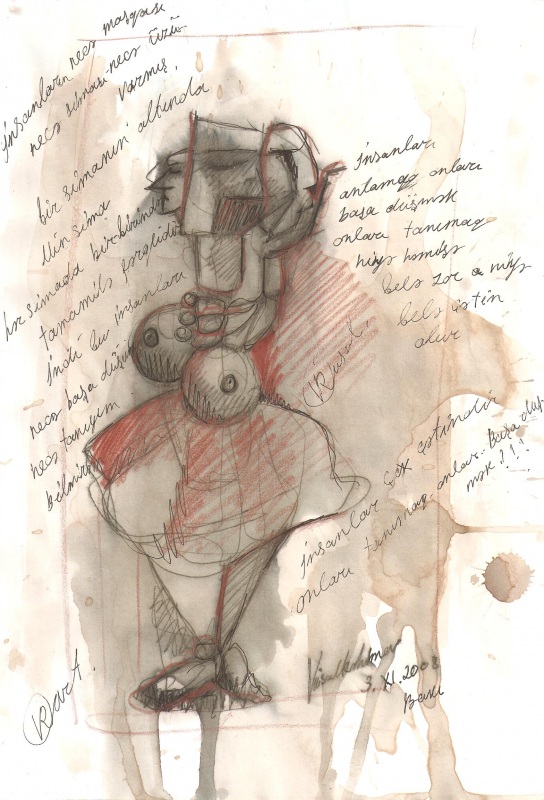 insanların necə maskası
necə siması necə üzü
varmış.
bir simanın altında
min sima
hər simada bir-birindən
tamamilə fərqlidir
indi bu insanları
necə başa düşüm
necə tanıyım
bilmirəm
insanları
anlamaq onları
başa düşmək
onları tanımaq
niyə həmişə
belə zor ə niyə
belə çətin
olur
Vüsal.
insanlar çox çətindir
onları tanımaq onları. Başa düş-
mək?!!
3. XI. 2008
Bakı
art.